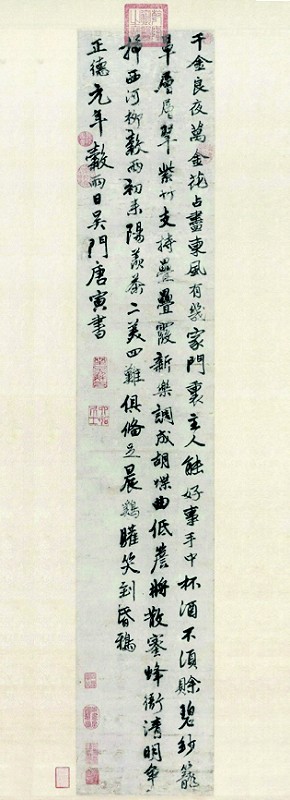 千金良夜萬金花占盡東風有幾家門裏主人能好事手中杯酒不須賒碧紗籠
罩層層翠紫竹支持疊疊霞新樂調成胡蝶曲低簷將散蜜蜂衙清明爭
插西河柳穀雨初來陽羨茶二美四難俱備足晨鷄笑到昏鴉
正德元年穀雨日吳門唐寅書